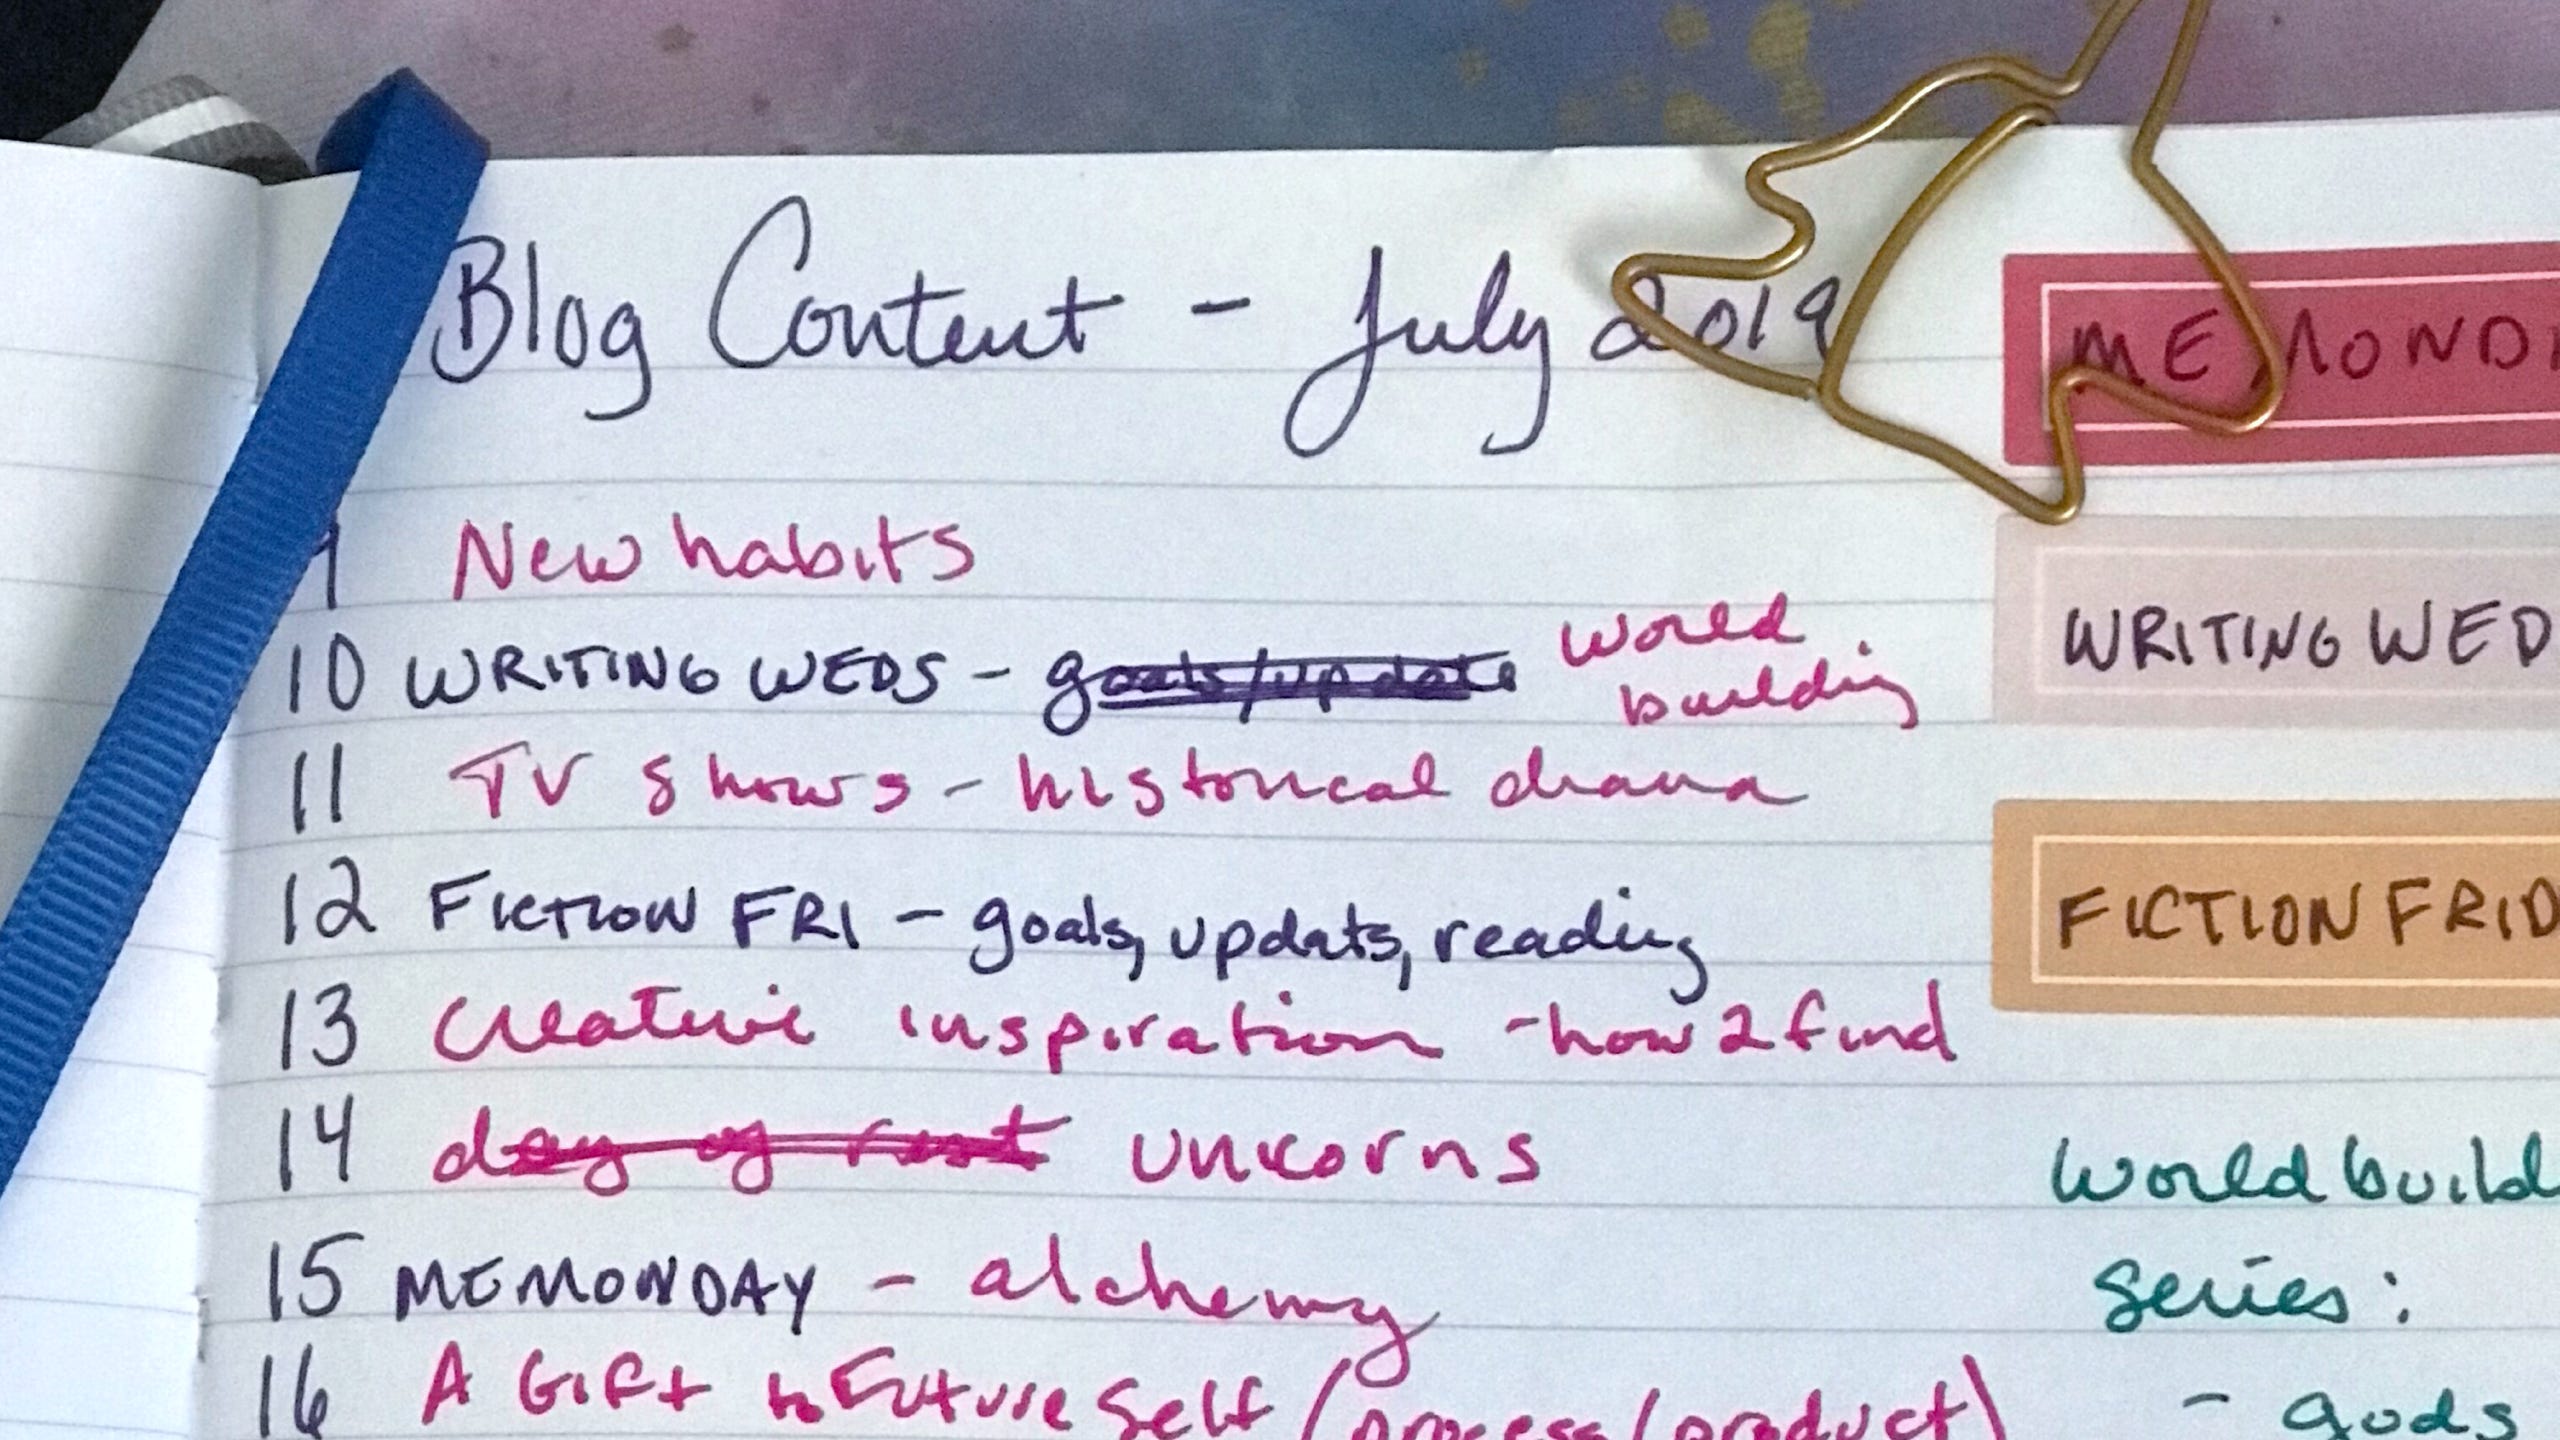 Blog Content - July 2019
9 New habits
10 WRITING WEDS - goals/update World building
11 TV shows - historical drama
12 FICTION FRI - goals, updats, reading
13 Creative inspiration - how 2 find
14 day of rest unicorns
15 MEMONDAY - alchemy
16 A Gift to Future Self (process/product)
MEMONDA
WRITING WED
FICTION FRID
World build
Series:
- gods